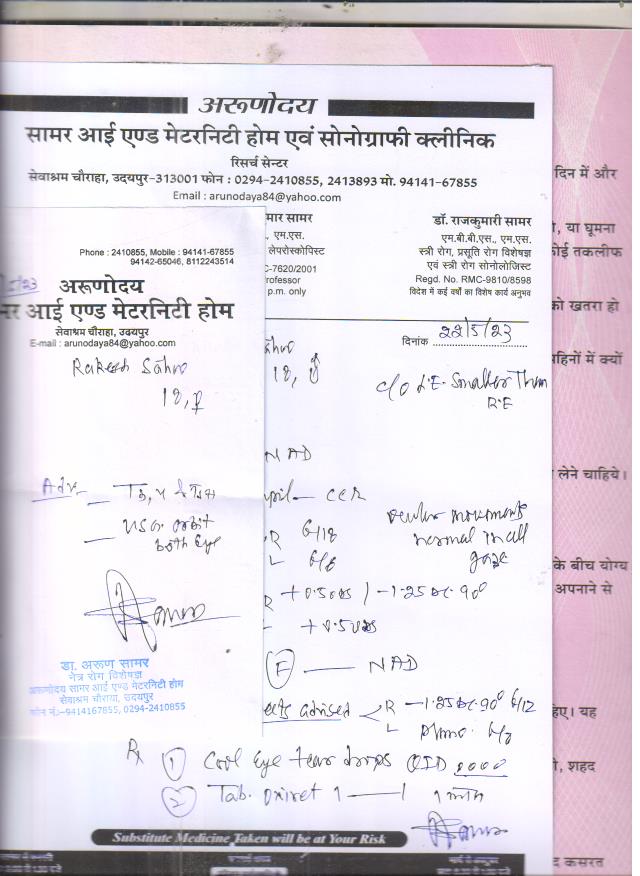 अरूणोदय
सामर आई एण्ड मेटरनिटी होम एवं सोनोग्राफी क्लीनिक
रिसर्च सेन्टर
सेवाश्रम चौराहा, उदयपुर-313001 फोन : 0294-2410855, 2413893 मो. 94141-67855
Email : arunodaya84@yahoo.com
मार सामर
, एम.एस.
लेपरोस्कोपिस्ट
C-7620/2001
rofessor
p.m. only
डॉ. राजकुमारी सामर
एम.बी.बी.एस., एम.एस.
स्त्री रोग, प्रसूति रोग विशेषज्ञ
एवं स्त्री रोग सोनोलोजिस्ट
Regd. No. RMC-9810/8598
विदेश में कई वर्षो का विशेष कार्य अनुभव
दिनांक 22/5/23
18,
c/o L.E. Smaller Than
R.E
NAD
upil - CCR
R 6/18
L 6/6
ocular movements
normal in all
gaze
R +0.50DS / -1.25 DC 90°
L +0.50DS
F - NAD
advised R -1.25 DC 90° 6/12
L plano 6/6
Rx 1 Cool Eye tear drops QID
2 Tab. 1 - 1
Substitute Medicine Taken will be at Your Risk
Phone : 2410855, Mobile : 94141-67855
94142-65046, 8112243514
5/23
अरूणोदय
मर आई एण्ड मेटरनिटी होम
सेवाश्रम चौराहा, उदयपुर
E-mail : arunodaya84@yahoo.com
Rakesh Sahu
18,
Adv - T3, T4 & TSH
- USG orbit
both Eye
डा. अरूण सामर
नेत्र रोग विशेषज्ञ
अरूणोदय सामर आई एण्ड मेटरनिटी होम
सेवाश्रम चौराया, उदयपुर
फोन नं.:-9414167855, 0294-2410855
दिन में और
, या घूमना
ोई तकलीफ
को खतरा हो
महिनों में क्यों
लेने चाहिये।
के बीच योग्य
अपनाने से
हिए। यह
, शहद
कसरत